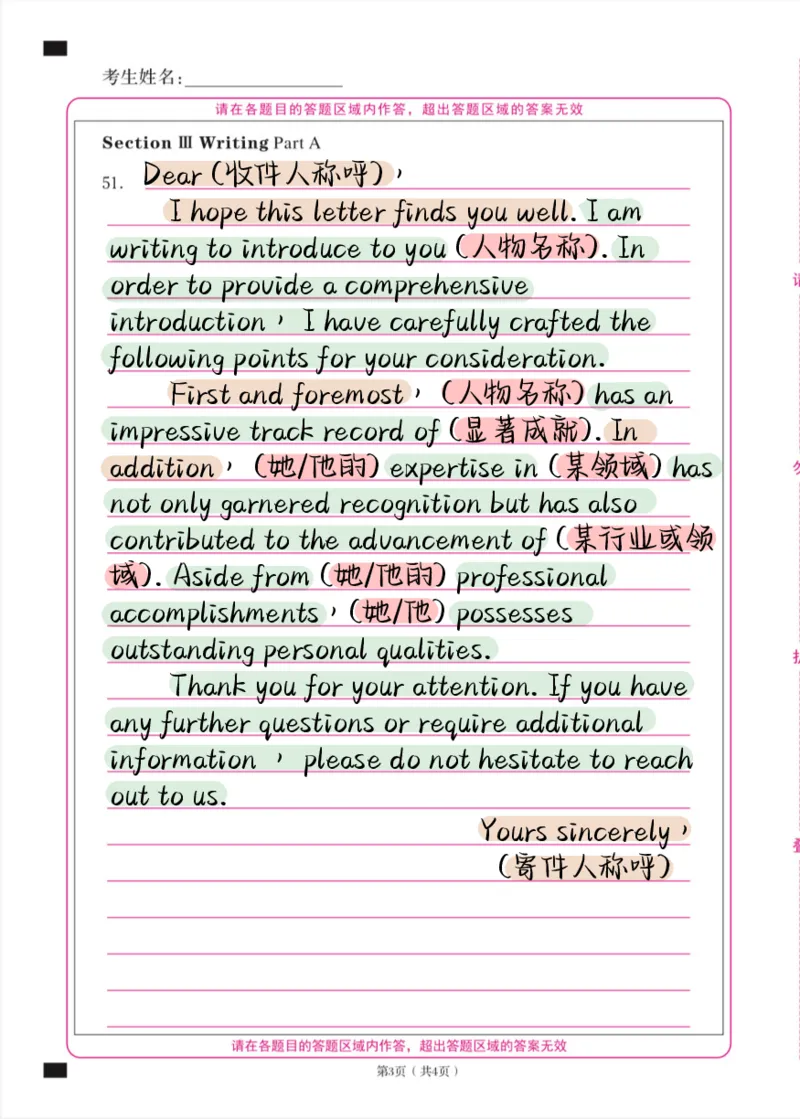 考生姓名：
请在各题目的答题区域内作答，超出答题区域的答案无效
Section Ⅲ Writing Part A
51. Dear (收件人称呼)，
I hope this letter finds you well. I am
writing to introduce to you (人物名称). In
order to provide a comprehensive
introduction， I have carefully crafted the
following points for your consideration.
First and foremost， (人物名称) has an
impressive track record of (显著成就). In
addition， (她/他的) expertise in (某领域) has
not only garnered recognition but has also
contributed to the advancement of (某行业或领
域). Aside from (她/他的) professional
accomplishments，(她/他) possesses
outstanding personal qualities.
Thank you for your attention. If you have
any further questions or require additional
information ， please do not hesitate to reach
out to us.
Yours sincerely，
(寄件人称呼)
请在各题目的答题区域内作答，超出答题区域的答案无效
第3页（共4页）